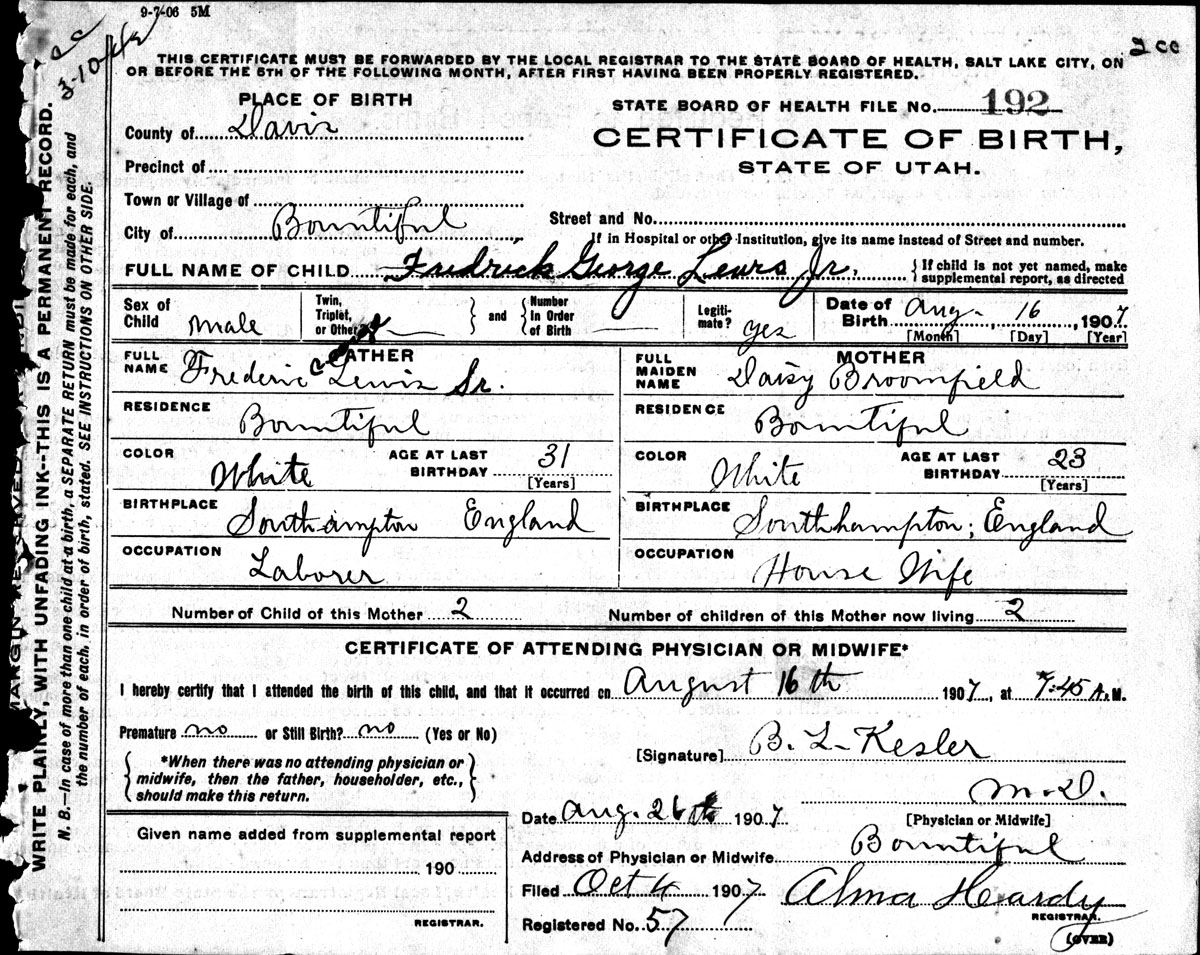 9-7-06 5M
3-10-42
2 cc
THIS CERTIFICATE MUST BE FORWARDED BY THE LOCAL REGISTRAR TO THE STATE BOARD OF HEALTH, SALT LAKE CITY, ON
OR BEFORE THE 5TH OF THE FOLLOWING MONTH, AFTER FIRST HAVING BEEN PROPERLY REGISTERED.
WRITE PLAINLY, WITH UNFADING INK--THIS IS A PERMANENT RECORD.
N. B.—In case of more than one child at a birth, a SEPARATE RETURN must be made for each, and
the number of each, in order of birth, stated. SEE INSTRUCTIONS ON OTHER SIDE.
PLACE OF BIRTH
STATE BOARD OF HEALTH FILE NO. 192
County of Davis
CERTIFICATE OF BIRTH,
Precinct of
STATE OF UTAH.
Town or Village of
City of Bountiful
Street and No.
If in Hospital or other Institution, give its name instead of Street and number.
FULL NAME OF CHILD Fredrick George Lewis Jr. {If child is not yet named, make
supplemental report, as directed
Sex of Child male
Twin, Triplet, or Other } and { Number In Order of Birth
Legiti-mate? yes
Date of Birth Aug. 16, 1907
[Month] [Day] [Year]
FATHER
FULL NAME Frederic Lewis Sr.
RESIDENCE Bountiful
COLOR White AGE AT LAST BIRTHDAY 31
[Years]
BIRTHPLACE Southampton England
OCCUPATION Laborer
MOTHER
FULL MAIDEN NAME Daisy Broomfield
RESIDENCE Bountiful
COLOR White AGE AT LAST BIRTHDAY 23
[Years]
BIRTHPLACE Southhampton; England
OCCUPATION House Wife
Number of Child of this Mother 2 Number of children of this Mother now living 2
CERTIFICATE OF ATTENDING PHYSICIAN OR MIDWIFE*
I hereby certify that I attended the birth of this child, and that it occurred on August 16th 1907, at 7:45 A.M.
Premature no or Still Birth? no (Yes or No)
{*When there was no attending physician or
midwife, then the father, householder, etc.,
should make this return.}
[Signature] B. L. Kesler
M.D.
[Physician or Midwife]
Date Aug. 26th 1907
Address of Physician or Midwife Bountiful
Filed Oct 4 1907 Alma Hardy
REGISTRAR.
Registered No. 57
(OVER)
Given name added from supplemental report
190
REGISTRAR.